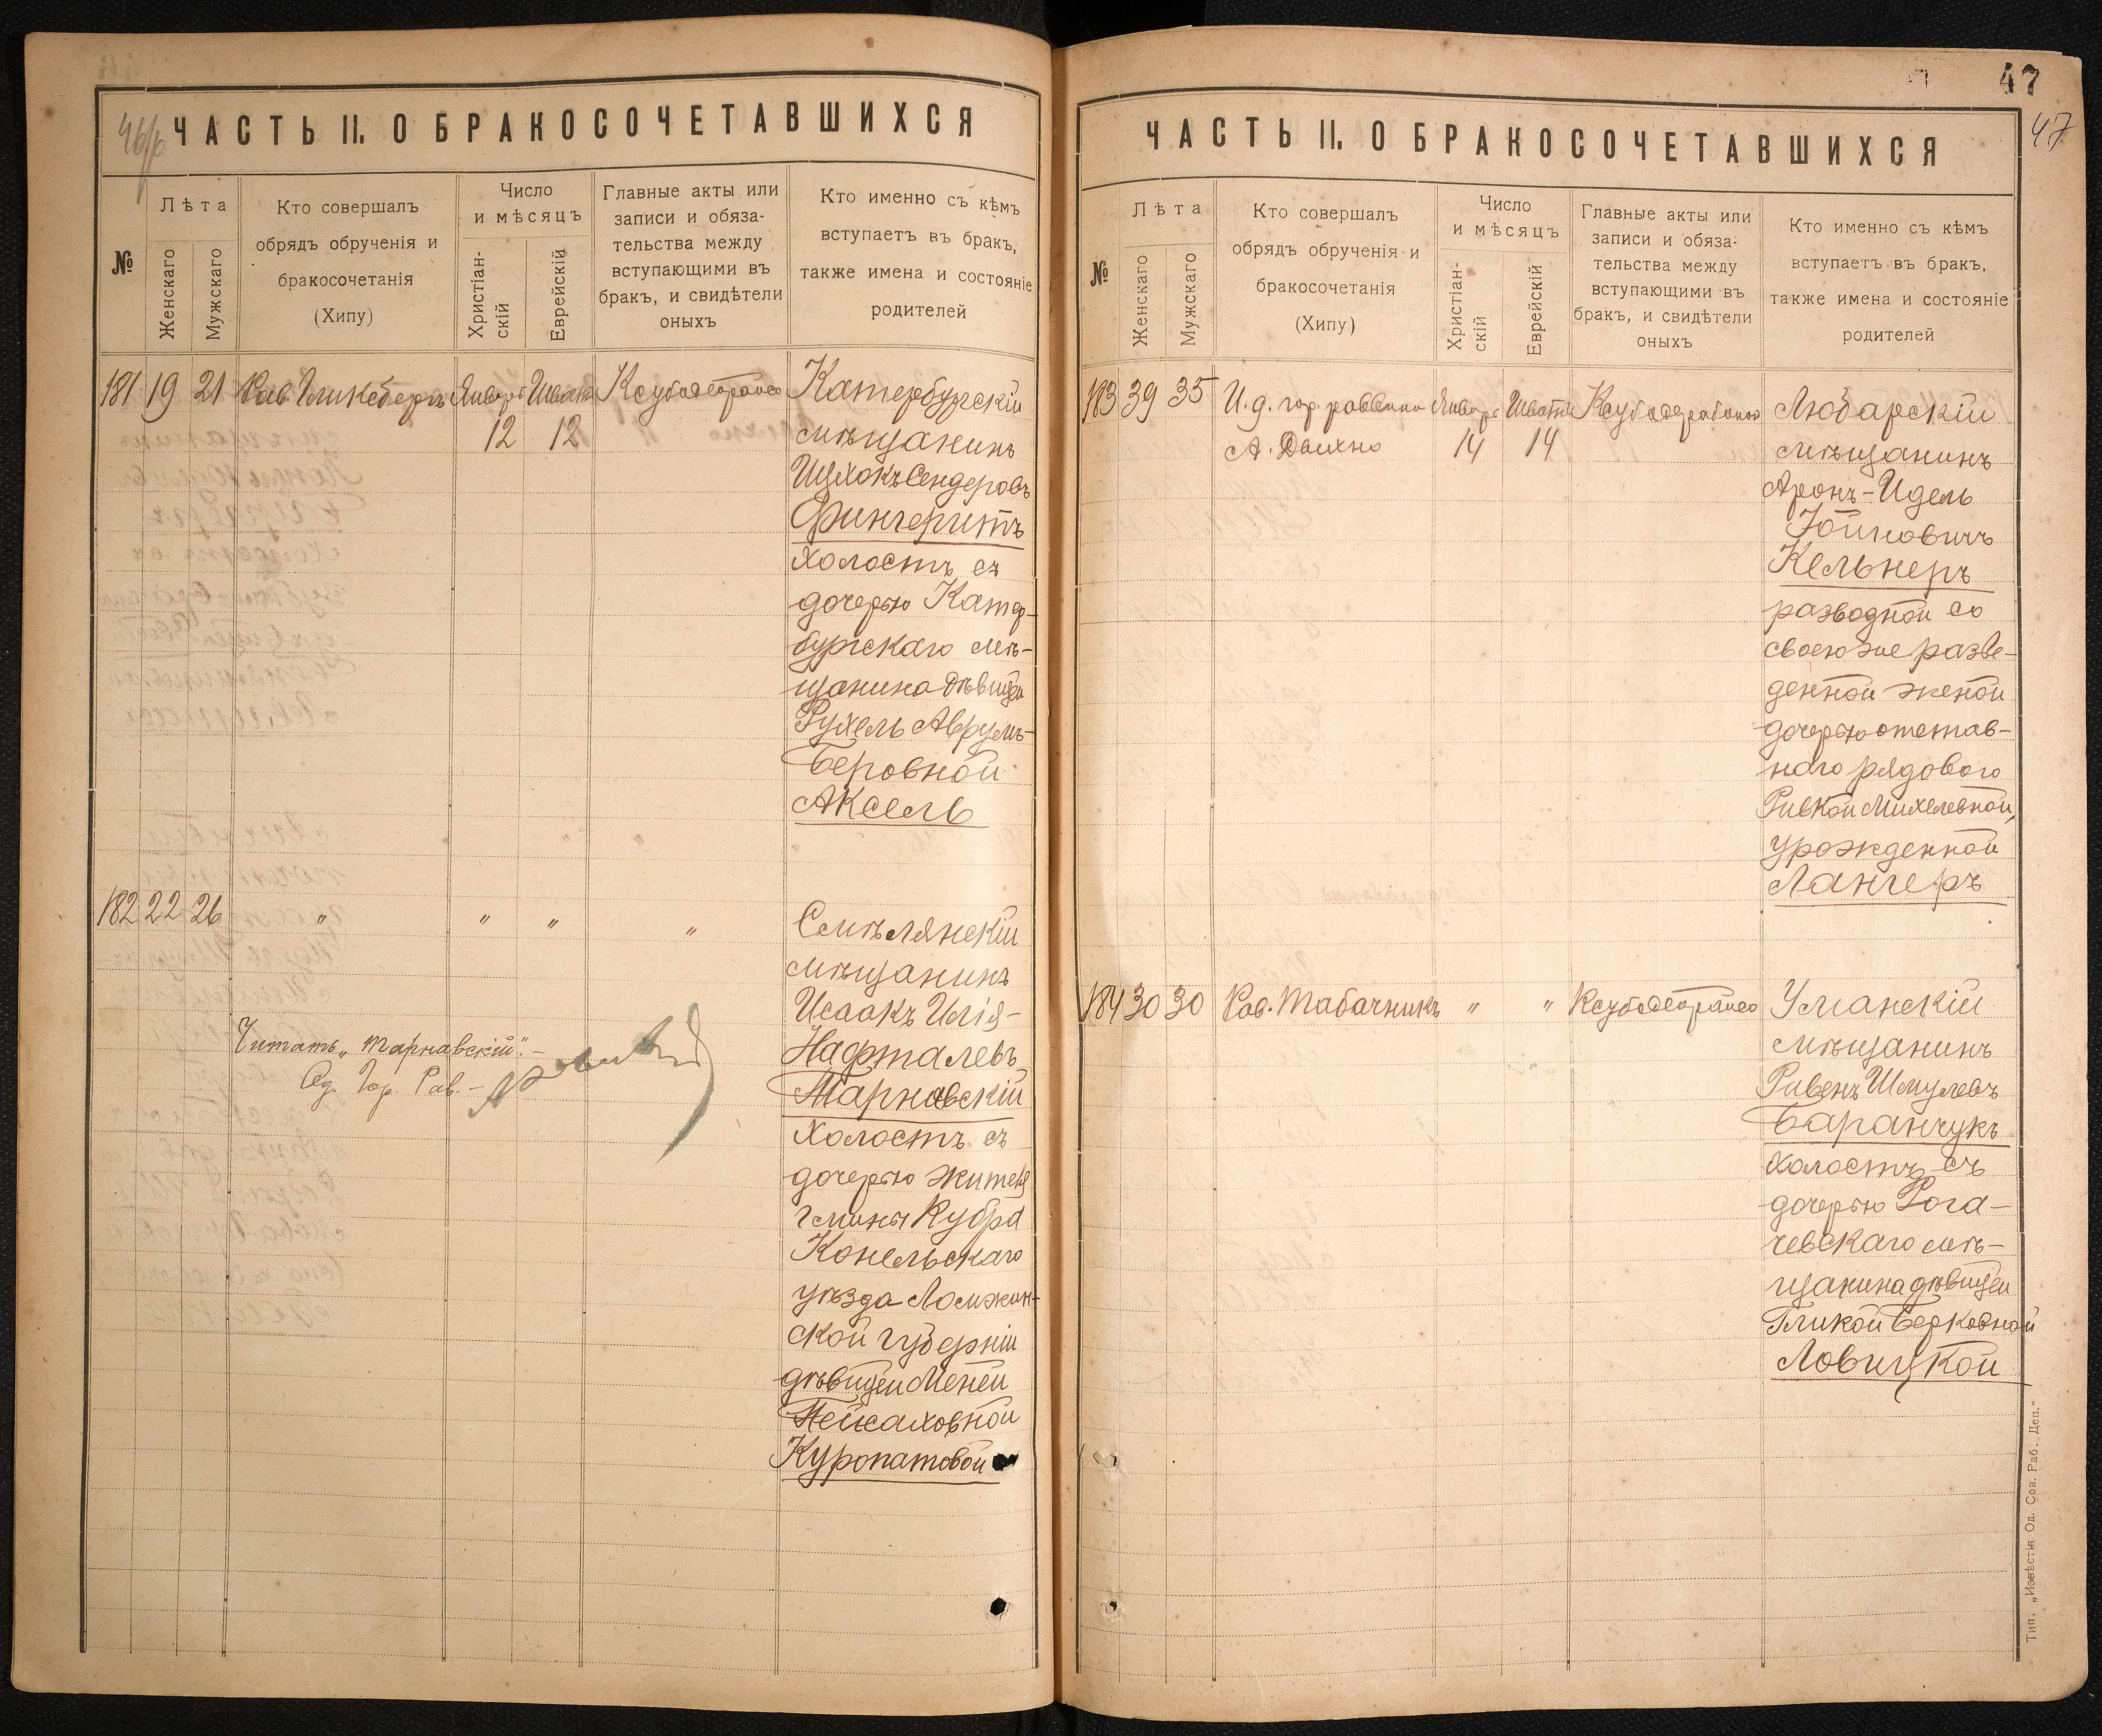 46/б
ЧАСТЬ II. О БРАКОСОЧЕТАВШИХСЯ
№
Лѣта
Женскаго
Мужскаго
Кто совершалъ
обрядъ обрученія и
бракосочетанія
(Хипу)
Число
и мѣсяцъ
Христіан-
скій
Еврейскій
Главные акты или
записи и обяза-
тельства между
вступающими въ
бракъ, и свидѣтели
оныхъ
Кто именно съ кѣмъ
вступаетъ въ бракъ,
также имена и состояніе
родителей
181 19 21 Рав. Гликсбергъ Январь Шватъ
12 12
Катербургскій
мѣщанинъ
Ицхокъ Сендеровъ
Фингерить
холостъ съ
дочерью Катер-
бургскаго мѣ-
щанина дѣвицей
Рухель Аврумъ-
Беровной
Аксель
182 22 26 " " " "
Смѣлянскій
мѣщанинъ
Исаакъ Илія-
Нафталевъ
Тарнавскій
холостъ съ
дочерью жителя
гмины Кубра
Конельскаго
уѣзда Ломжин-
ской губерніи
дѣвицей Меней
Пейсаховной
Куропатовой
Читать „Тарнавскій".-
Од. Гор. Рав. -
47
47
ЧАСТЬ II. О БРАКОСОЧЕТАВШИХСЯ
№
Лѣта
Женскаго
Мужскаго
Кто совершалъ
обрядъ обрученія и
бракосочетанія
(Хипу)
Число
и мѣсяцъ
Христіан-
скій
Еврейскій
Главные акты или
записи и обяза-
тельства между
вступающими въ
бракъ, и свидѣтели
оныхъ
Кто именно съ кѣмъ
вступаетъ въ бракъ,
также имена и состояніе
родителей
183 39 35 И. д. гор. раввина Январь Шватъ
А. Дыхно 14 14
Любарскій
мѣщанинъ
Аронъ-Идель
Іойновичъ
Кельнеръ
разводной со
своею же разве-
денной женой
дочерью отстав-
наго рядового
Ривкой Михелевной,
урожденной
Лангеръ
184 30 30 Рав. Табачникъ " "
Уманскій
мѣщанинъ
Ривенъ Шмулевъ
Баранчукъ
холостъ съ
дочерью Рога-
чевскаго мѣ-
щанина дѣвицей
Гликой Берковной
Ловицкой
Тип. „Извѣстія Од. Сов. Раб. Деп."